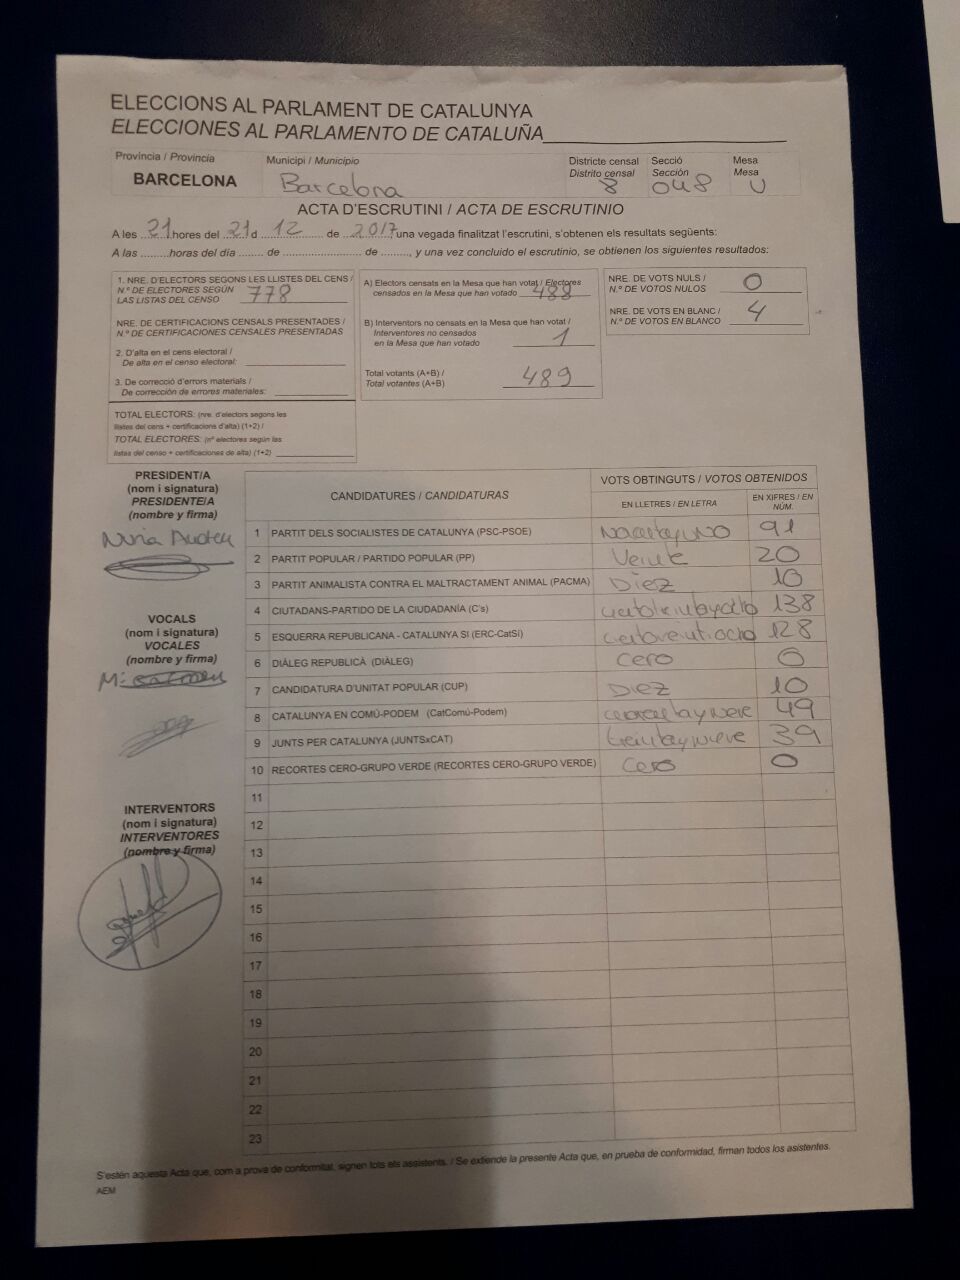 ELECCIONS AL PARLAMENT DE CATALUNYA
ELECCIONES AL PARLAMENTO DE CATALUÑA
Província / Provincia
BARCELONA
Municipi / Municipio
Barcelona
Districte censal
Distrito censal
8
Secció
Sección
048
Mesa
Mesa
U
ACTA D'ESCRUTINI / ACTA DE ESCRUTINIO
A les 21 hores del 21 d 12 de 2017 una vegada finalitzat l'escrutini, s'obtenen els resultats següents:
A las .........horas del día ....... de ........................ de ........, y una vez concluido el escrutinio, se obtienen los siguientes resultados:
1. NRE. D'ELECTORS SEGONS LES LLISTES DEL CENS /
N.º DE ELECTORES SEGÚN
LAS LISTAS DEL CENSO 778
NRE. DE CERTIFICACIONS CENSALS PRESENTADES /
N.º DE CERTIFICACIONES CENSALES PRESENTADAS
2. D'alta en el cens electoral /
De alta en el censo electoral:
3. De correcció d'errors materials /
De corrección de errores materiales:
TOTAL ELECTORS: (nre. d'electors segons les
llistes del cens + certificacions d'alta) (1+2) /
TOTAL ELECTORES: (nº electores según las
listas del censo + certificaciones de alta) (1+2)
A) Electors censats en la Mesa que han votat / Electores
censados en la Mesa que han votado 488
B) Interventors no censats en la Mesa que han votat /
Interventores no censados
en la Mesa que han votado 1
Total votants (A+B) /
Total votantes (A+B) 489
NRE. DE VOTS NULS /
N.º DE VOTOS NULOS 0
NRE. DE VOTS EN BLANC /
N.º DE VOTOS EN BLANCO 4
PRESIDENT/A
(nom i signatura)
PRESIDENTE/A
(nombre y firma)
VOCALS
(nom i signatura)
VOCALES
(nombre y firma)
INTERVENTORS
(nom i signatura)
INTERVENTORES
(nombre y firma)
CANDIDATURES / CANDIDATURAS
VOTS OBTINGUTS / VOTOS OBTENIDOS
EN LLETRES / EN LETRA
EN XIFRES / EN NÚM.
1 PARTIT DELS SOCIALISTES DE CATALUNYA (PSC-PSOE) 91
2 PARTIT POPULAR / PARTIDO POPULAR (PP) Veinte 20
3 PARTIT ANIMALISTA CONTRA EL MALTRACTAMENT ANIMAL (PACMA) Diez 10
4 CIUTADANS-PARTIDO DE LA CIUDADANÍA (C's) 138
5 ESQUERRA REPUBLICANA - CATALUNYA SÍ (ERC-CatSí) 128
6 DIÀLEG REPUBLICÀ (DIÀLEG) Cero 0
7 CANDIDATURA D'UNITAT POPULAR (CUP) Diez 10
8 CATALUNYA EN COMÚ-PODEM (CatComú-Podem) 49
9 JUNTS PER CATALUNYA (JUNTSxCAT) treintaynueve 39
10 RECORTES CERO-GRUPO VERDE (RECORTES CERO-GRUPO VERDE) Cero 0
11
12
13
14
15
16
17
18
19
20
21
22
23
S'estén aquesta Acta que, com a prova de conformitat, signen tots els assistents. / Se extiende la presente Acta que, en prueba de conformidad, firman todos los asistentes.
AEM